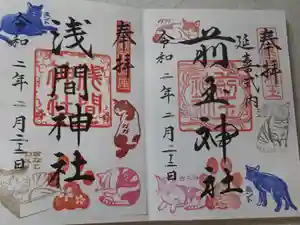 奉拝
延喜式内
前玉神社
令和二年二月二十二日
奉拝
浅間神社
令和二年二月二十二日